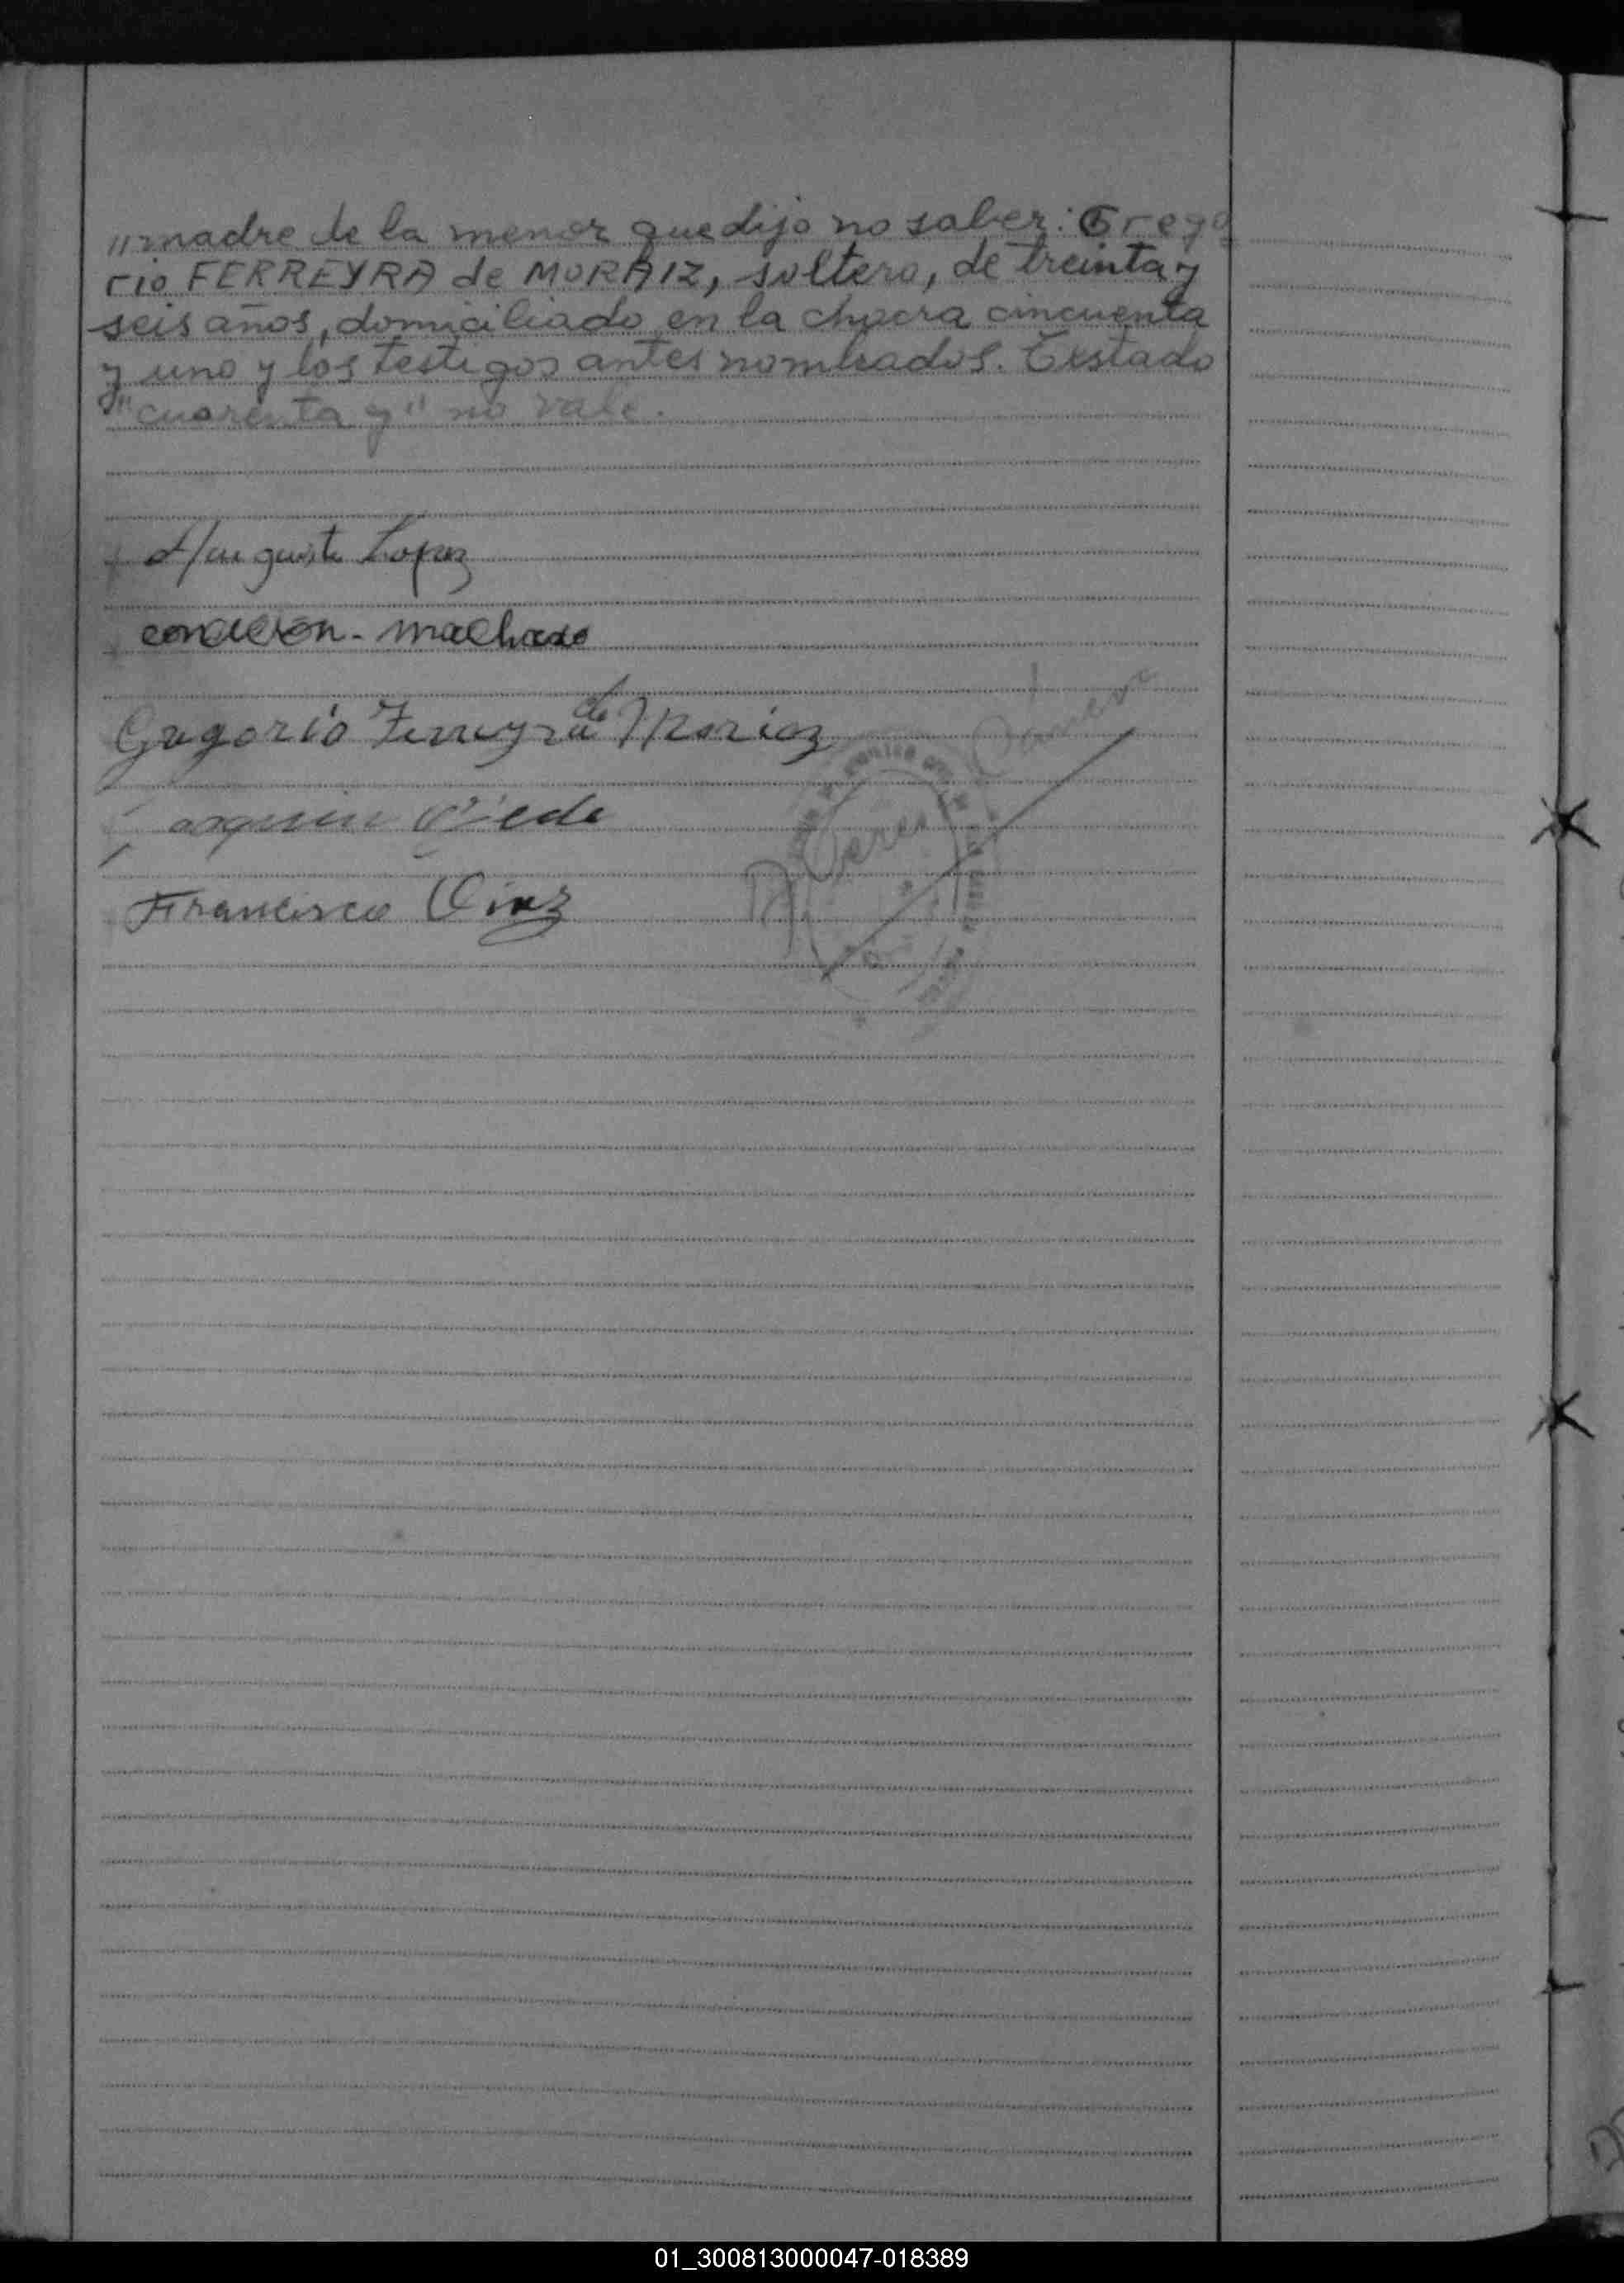 "madre de la menor que dijo no saber: Grego
rio FERREYRA de MORAIZ, soltero, de treinta y
seis años, domiciliado en la chacra cincuenta
y uno y los testigos antes nombrados. Testado
"cuarenta y" no vale.
Augusto Lopez
concecion - machado
Gregorio Ferreyra de Moriaz
Francisco Diaz
01_300813000047-018389